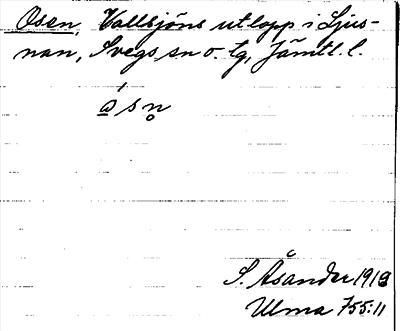 Osen, Vallsjöns utlopp i Ljus-
nan, Svegs sn o. tg, Jämtl. l.
ǻ s n̥
S. Åsander 1918
Ulma 755:11